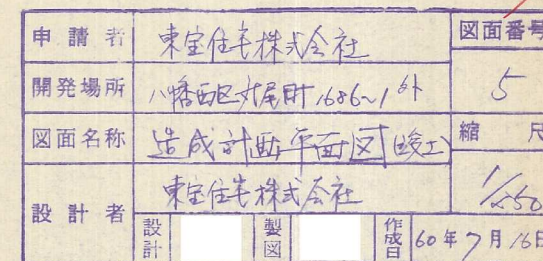 申請者 東宝住宅株式会社 図面番号
開発場所 八幡西区丸尾町1686~1外 5
図面名称 造成計画平面図(竣工) 縮尺
設計者 東宝住宅株式会社 1/250
設計 製図 作成日 60年7月16日